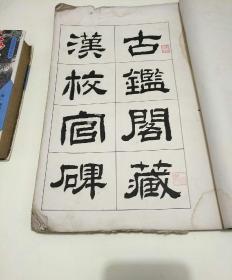 古鑑閣藏
漢校官碑